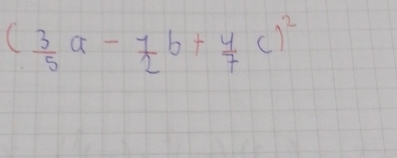 (3/5 a - 1/2 b + 4/7 c)²